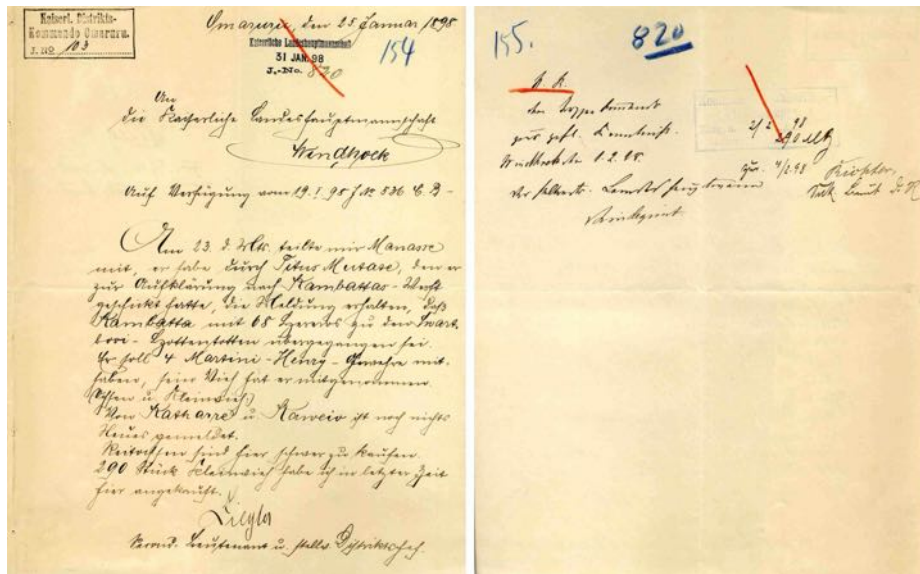 Kaiserl. Distrikts-
Kommando Omaruru.
J. No 103
Omaruru, den 25. Januar 1898
Kaiserliche Landeshauptmannschaft
31 JAN. 98
J.-No. 820
154
An
die Kaiserliche Landeshauptmannschaft
Windhoek
Auf Verfügung vom 19. I. 98 J. No 536
Am 23. d. Mts. teilte mir Manasse
mit, er habe durch Titus Mutase, den er
zur Aufklärung nach Kambattas-Werft
geschickt hatte, die Meldung erhalten, daß
Kambatta mit 68 Hereros zu den Swart-
booi-Hottentotten übergegangen sei.
Er soll 4 Martini-Henry-Gewehre mit-
haben, sein Vieh hat er mitgenommen.
(Ochsen u. Kleinvieh.)
Von Katharre u. Kaweio ist noch nichts
Neues gemeldet.
Reitochsen sind hier schwer zu kaufen.
290 Stück Kleinvieh habe ich in letzter Zeit
hier angekauft.
Ziegler
Lieutenant u. stellv. Distriktschef.
155.
820
dem
zur gefl. Kenntniß.
Windhoek den 1.2.98.
Der
2/2 98
290
4/2.98